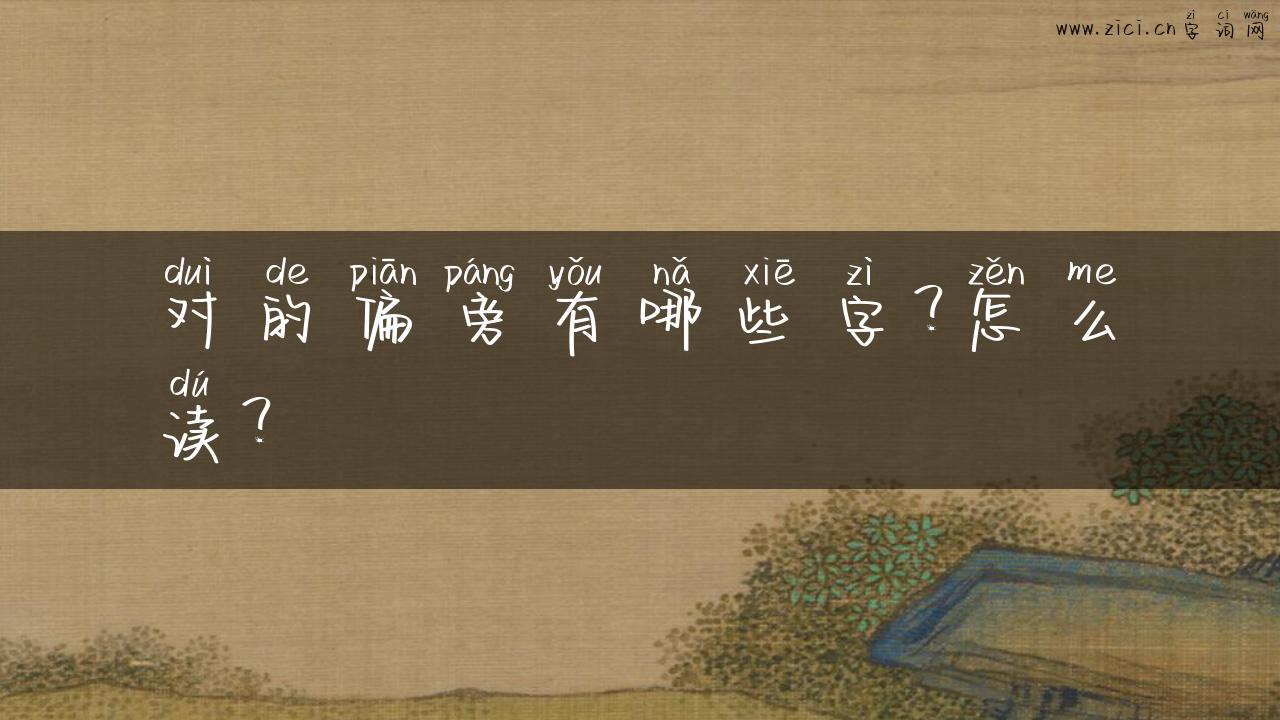 zì cí wǎng
www.zici.cn 字词网
duì de piān páng yǒu nǎ xiē zì zěn me
对的偏旁有哪些字？怎么
dú
读？